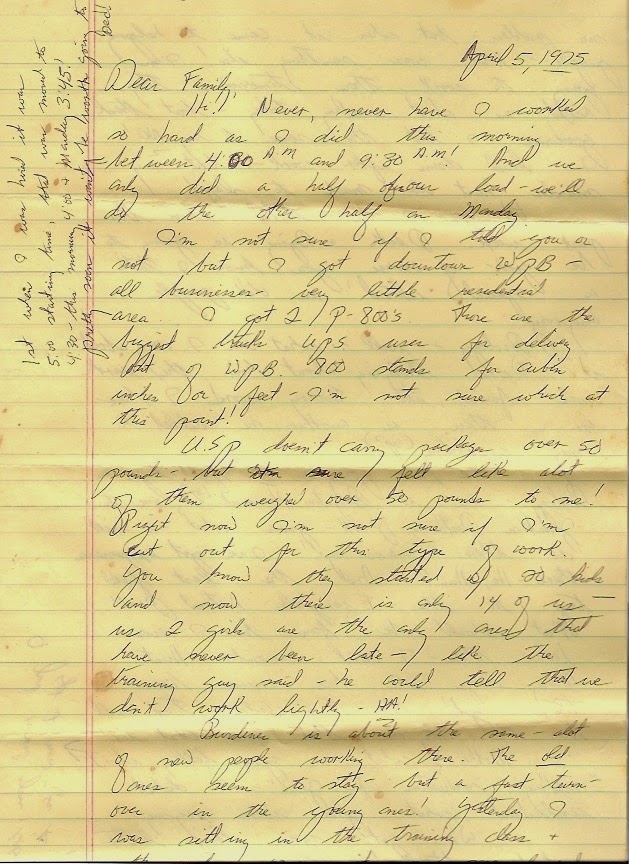 April 5, 1975
Dear Family,
Hi!! Never, never have I worked
so hard as I did this morning
between 4:00 AM and 9:30 A.M! And we
only did a half of our load - we'll
do the other half on Monday.
I'm not sure if I told you or
not but I got downtown WPB -
all businesses - very little residential
area. I got 2 P-800's. These are the
biggest trucks UPS uses for delivery
out of WPB. 800 stands for cubin
inches or feet - I'm not sure which at
this point!
U.S.P doesn't carry packages over 50
pounds - but sure felt like alot
of them weighed over 50 pounds to me!
Right now I'm not sure if I'm
cut out for this type of work.
You know they started w/ 20 kids
and now there is only 14 of us -
us 2 girls are the only ones that
have never been late - like the
training guy said - he could tell that we
don't work lightly - HA!
Burdines is about the same - alot
of new people working there. The old
ones seem to stay - but a fast turn-
over in the young ones! Yesterday I
was sitting in the training class +
1st when I was hired it was
5:00 starting time, that was moved to
4:30 - this morning 4:00 + Monday 3:45!
Pretty soon it won't be worth going to
bed!